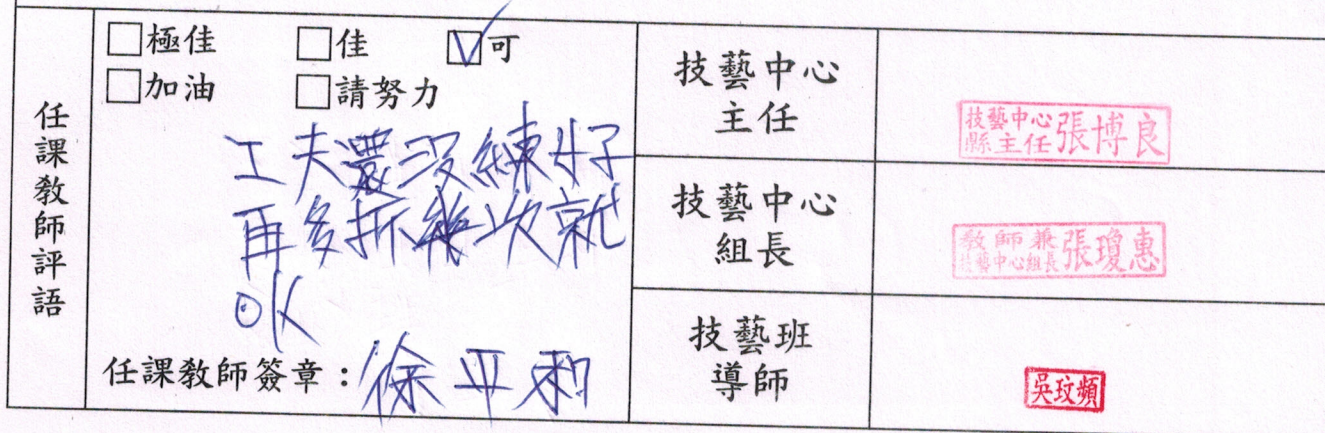 任課教師評語
□極佳 □佳 ☑可
□加油 □請努力
工夫還沒練好
再多抓幾次就
OK
任課教師簽章：徐平和
技藝中心
主任
技藝中心
縣主任 張博良
技藝中心
組長
教師兼
技藝中心組長 張瓊惠
技藝班
導師
吳玟頻